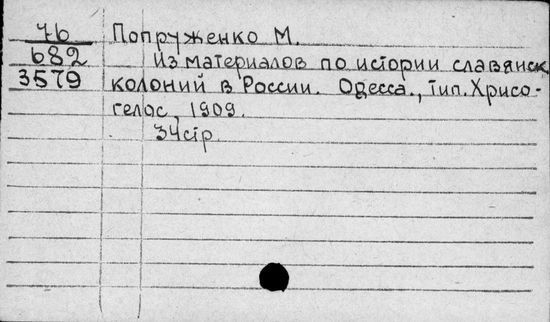 7б Попруженко М.
682 Из материалов по истории славянск.
3579 колоний в России. Одесса., тип. Хрисо-
гелос, 1909.
34стр.